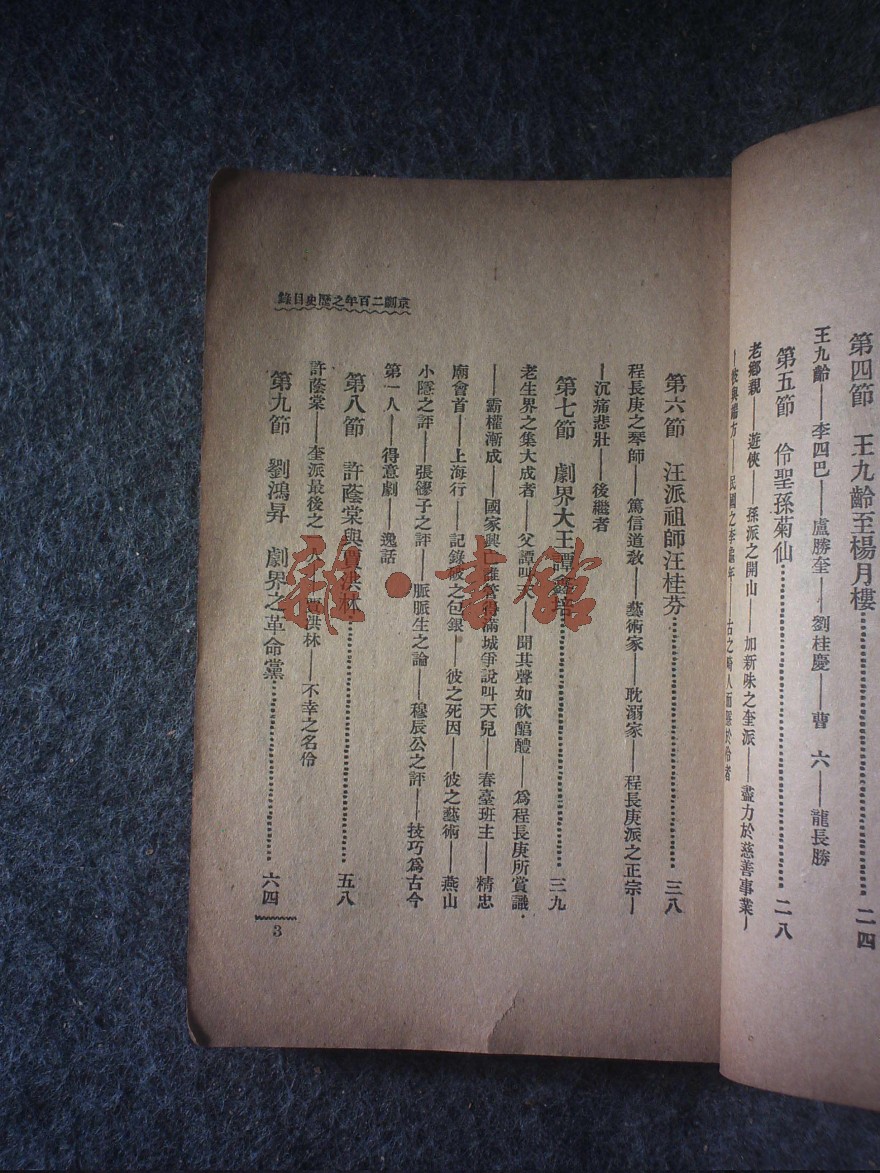 第四節　王九齡至楊月樓……二四
王九齡——李四巴——盧勝奎——劉桂慶——曹　六——龍長勝
第五節　伶聖孫菊仙……二八
老鄉親——遊俠——孫派之開山——加新味之奎派——盡力於慈善事業—
民國之李龜年
京劇二百年之歷史目錄
第六節　汪派祖師汪桂芬……三八
程長庚之琴師——篤信道敎——藝術家——耽溺家——程長庚派之正宗—
—沉痛悲壯——後繼者
第七節　劇界大王譚鑫培……三九
老生界之集大成者——父譚叫天——聞其聲如飲醇醴——爲程長庚所賞識·
——霸權漸成——國家興亡誰管得滿城爭說叫天兒——春臺班主——精忠
廟會首——上海行——記錄破之包銀——彼之死因——彼之藝術——燕山
小隱之評——張繆子之評——脈脈生之論——穆辰公之評——技巧爲古今
第一人——得意劇——逸話
第八節　許蔭棠與賈洪林……五八
許蔭棠——奎派最後之人——賈洪林——不幸之名伶
第九節　劉鴻昇　劇界之革命黨……六四
3
雜·書館